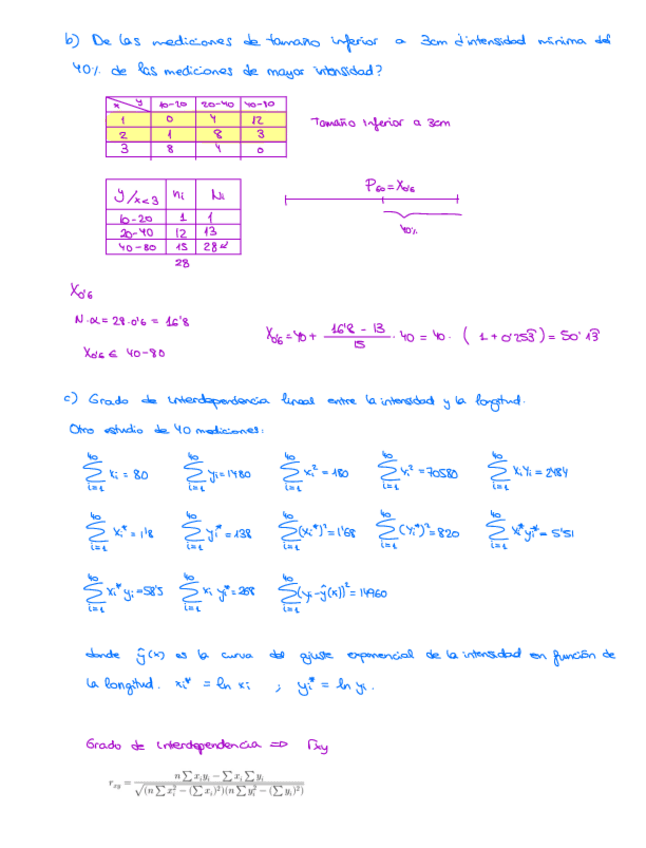 b) De las mediciones de tamaño inferior a 3cm ¿intensidad mínima del
40% de las mediciones de mayor intensidad?
x y 10-20 20-40 40-80
1 0 4 12
2 1 8 3
3 8 4 0
Tamaño inferior a 3cm
y/x<3 ni Ni
10-20 1 1
20-40 12 13
40-80 15 28
28
P60 = X0'6
40%
X0'6
N·α = 28·0'6 = 16'8
X0'6 ∈ 40-80
X0'6 = 40 + (16'8 - 13)/15 · 40 = 40 · (1 + 0'253) = 50'13
c) Grado de interdependencia lineal entre la intensidad y la longitud.
Otro estudio de 40 mediciones:
40 ∑ i=1 xi = 80 40 ∑ i=1 yi = 1480 40 ∑ i=1 xi² = 180 40 ∑ i=1 yi² = 70580 40 ∑ i=1 xiyi = 2484
40 ∑ i=1 xi* = 1'8 40 ∑ i=1 yi* = 138 40 ∑ i=1 (xi*)² = 1'68 40 ∑ i=1 (yi*)² = 820 40 ∑ i=1 xi*yi* = 5'51
40 ∑ i=1 xi* yi = 58'5 40 ∑ i=1 xi yi* = 268 40 ∑ i=1 (yi - ŷ(x))² = 14960
donde ŷ(x) es la curva del ajuste exponencial de la intensidad en función de
la longitud. xi* = ln xi ; yi* = ln yi.
Grado de interdependencia => rxy
rxy = (n∑xiyi − ∑xi∑yi) / √((n∑xi² − (∑xi)²)(n∑yi² − (∑yi)²))